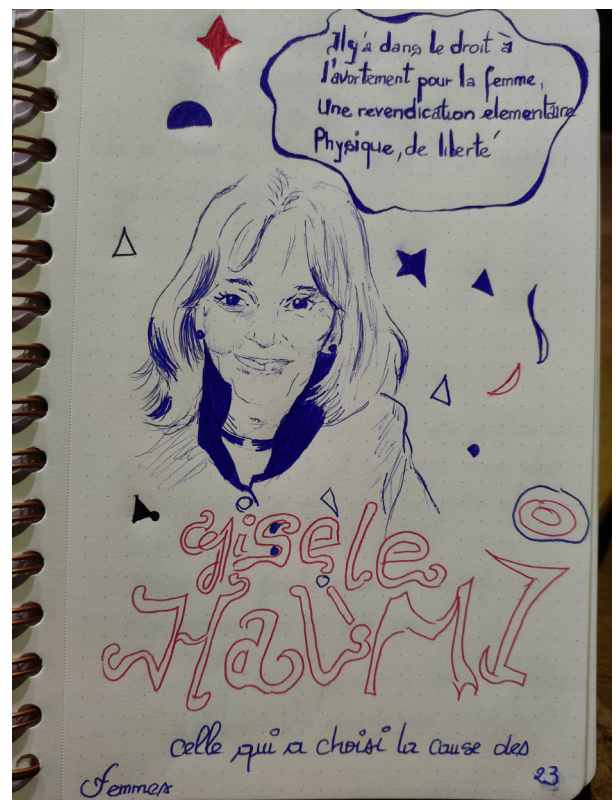 Il y'a dans le droit à
l'avortement pour la femme,
Une revendication elementaire
Physique, de liberté
Gisèle
HaLiMI
celle qui a choisi la cause des
Femmes
23